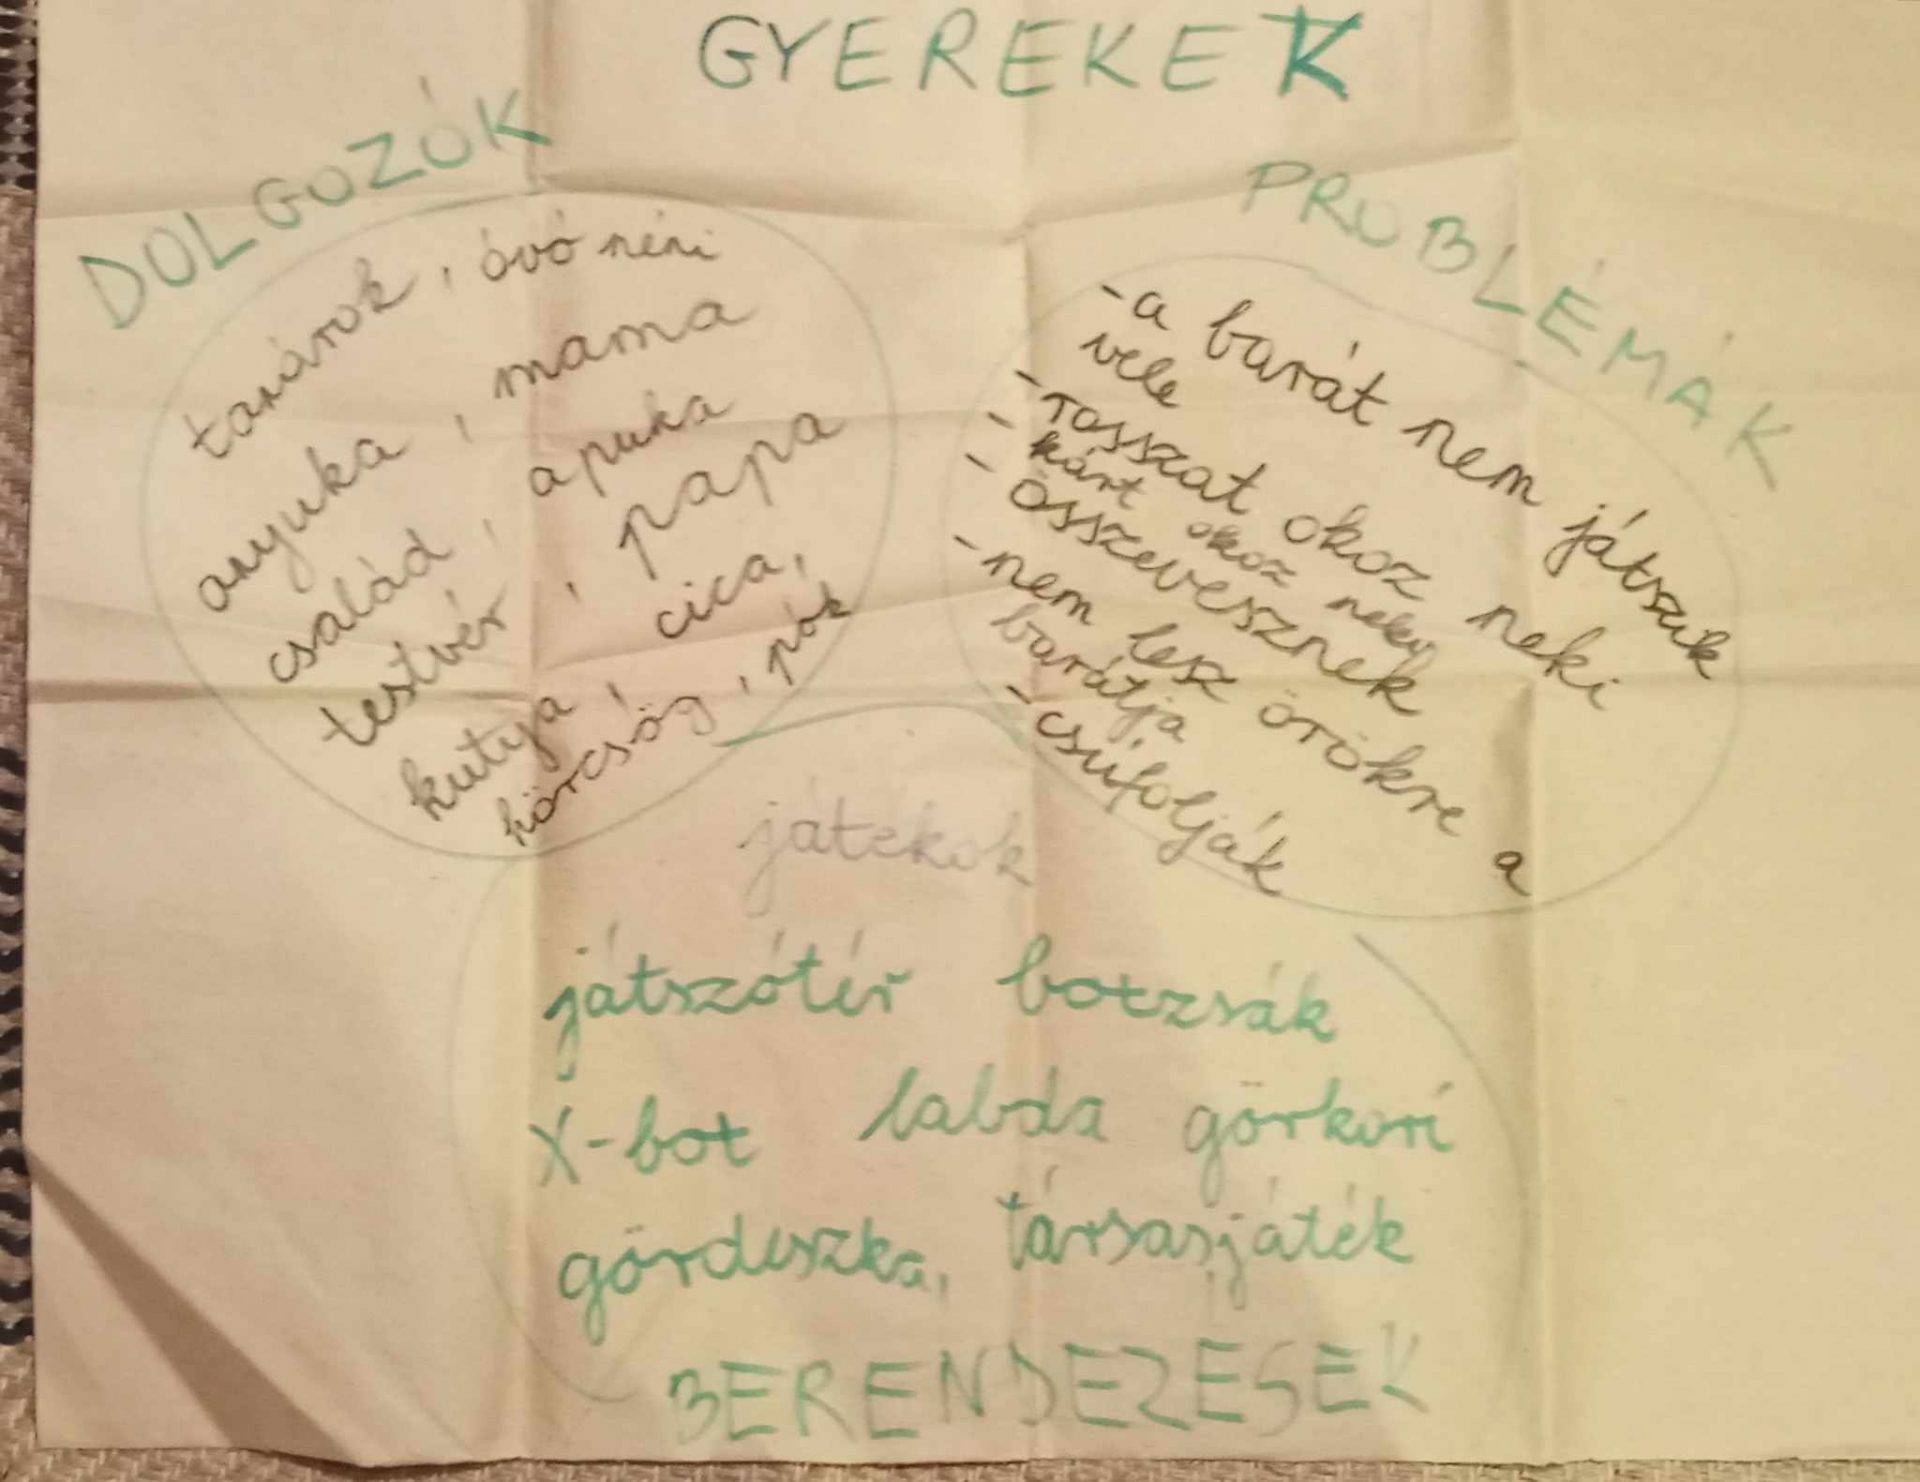 GYEREKEK
DOLGOZÓK
tanárok, óvó néni
anyuka, mama
család, apuka
testvér, papa
kutya, cica,
hörcsög, pók
PROBLÉMÁK
-a barát nem játszik
vele
-rosszat okoz neki
-kárt okoz neki
-összevesznek
-nem lesz örökre a
barátja
-csúfolják
játékok
játszótér botzsák
X-bot labda görkori
gördeszka, társasjáték
BERENDEZESEK